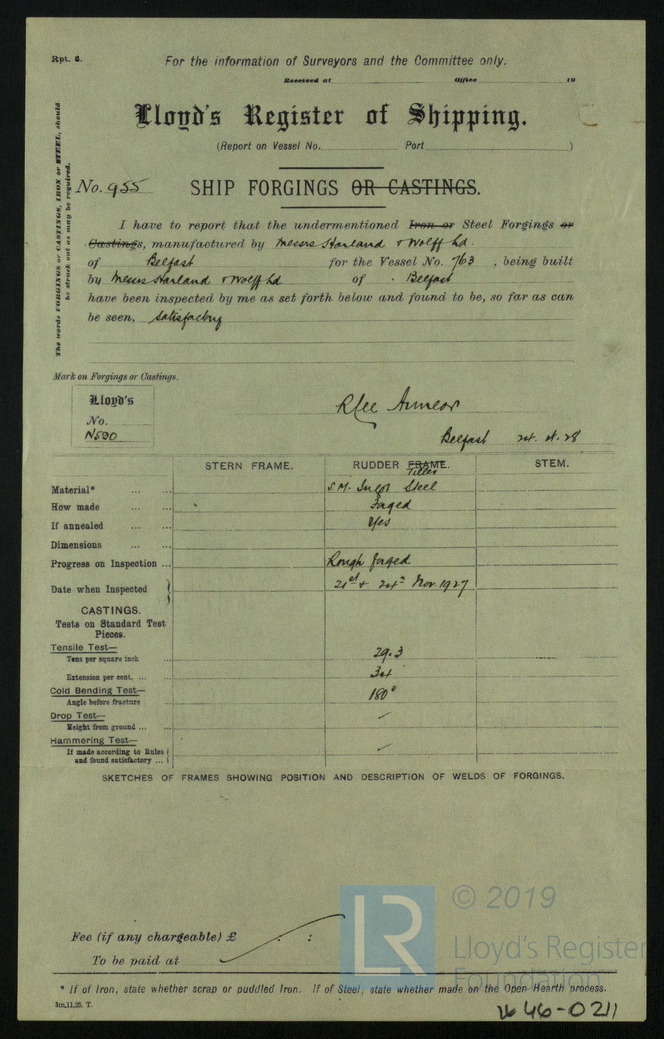 Rpt. 6.
For the information of Surveyors and the Committee only.
Received at Office 19
Lloyd's Register of Shipping.
(Report on Vessel No. Port )
The words FORGINGS or CASTINGS, IRON or STEEL, should be struck out as may be required.
No. 955 SHIP FORGINGS OR CASTINGS.
I have to report that the undermentioned Iron or Steel Forgings or
Castings, manufactured by Messrs Harland & Wolff Ld.
of Belfast for the Vessel No. 763, being built
by Messrs Harland & Wolff Ld of Belfast
have been inspected by me as set forth below and found to be, so far as can
be seen, satisfactory
Mark on Forgings or Castings.
Lloyd's
No.
N590
Belfast
STERN FRAME. RUDDER FRAME. STEM.
Tiller
Material* ... ... S.M. Ingot Steel
How made ... ... Forged
If annealed ... ... Yes
Dimensions ... ...
Progress on Inspection ... Rough forged
Date when Inspected } 21st & 24th Nov. 1927
CASTINGS.
Tests on Standard Test
Pieces.
Tensile Test—
Tons per square inch ... 29.3
Extension per cent. ... ... 34
Cold Bending Test—
Angle before fracture 180°
Drop Test—
Height from ground ... ... ✓
Hammering Test—
If made according to Rules
and found satisfactory ... { ✓
SKETCHES OF FRAMES SHOWING POSITION AND DESCRIPTION OF WELDS OF FORGINGS.
Fee (if any chargeable) £ : :
To be paid at
* If of Iron, state whether scrap or puddled Iron. If of Steel, state whether made on the Open Hearth process.
3m,11,26. T.
© 2019
LR
Lloyd's Register
Foundation
1646-0211